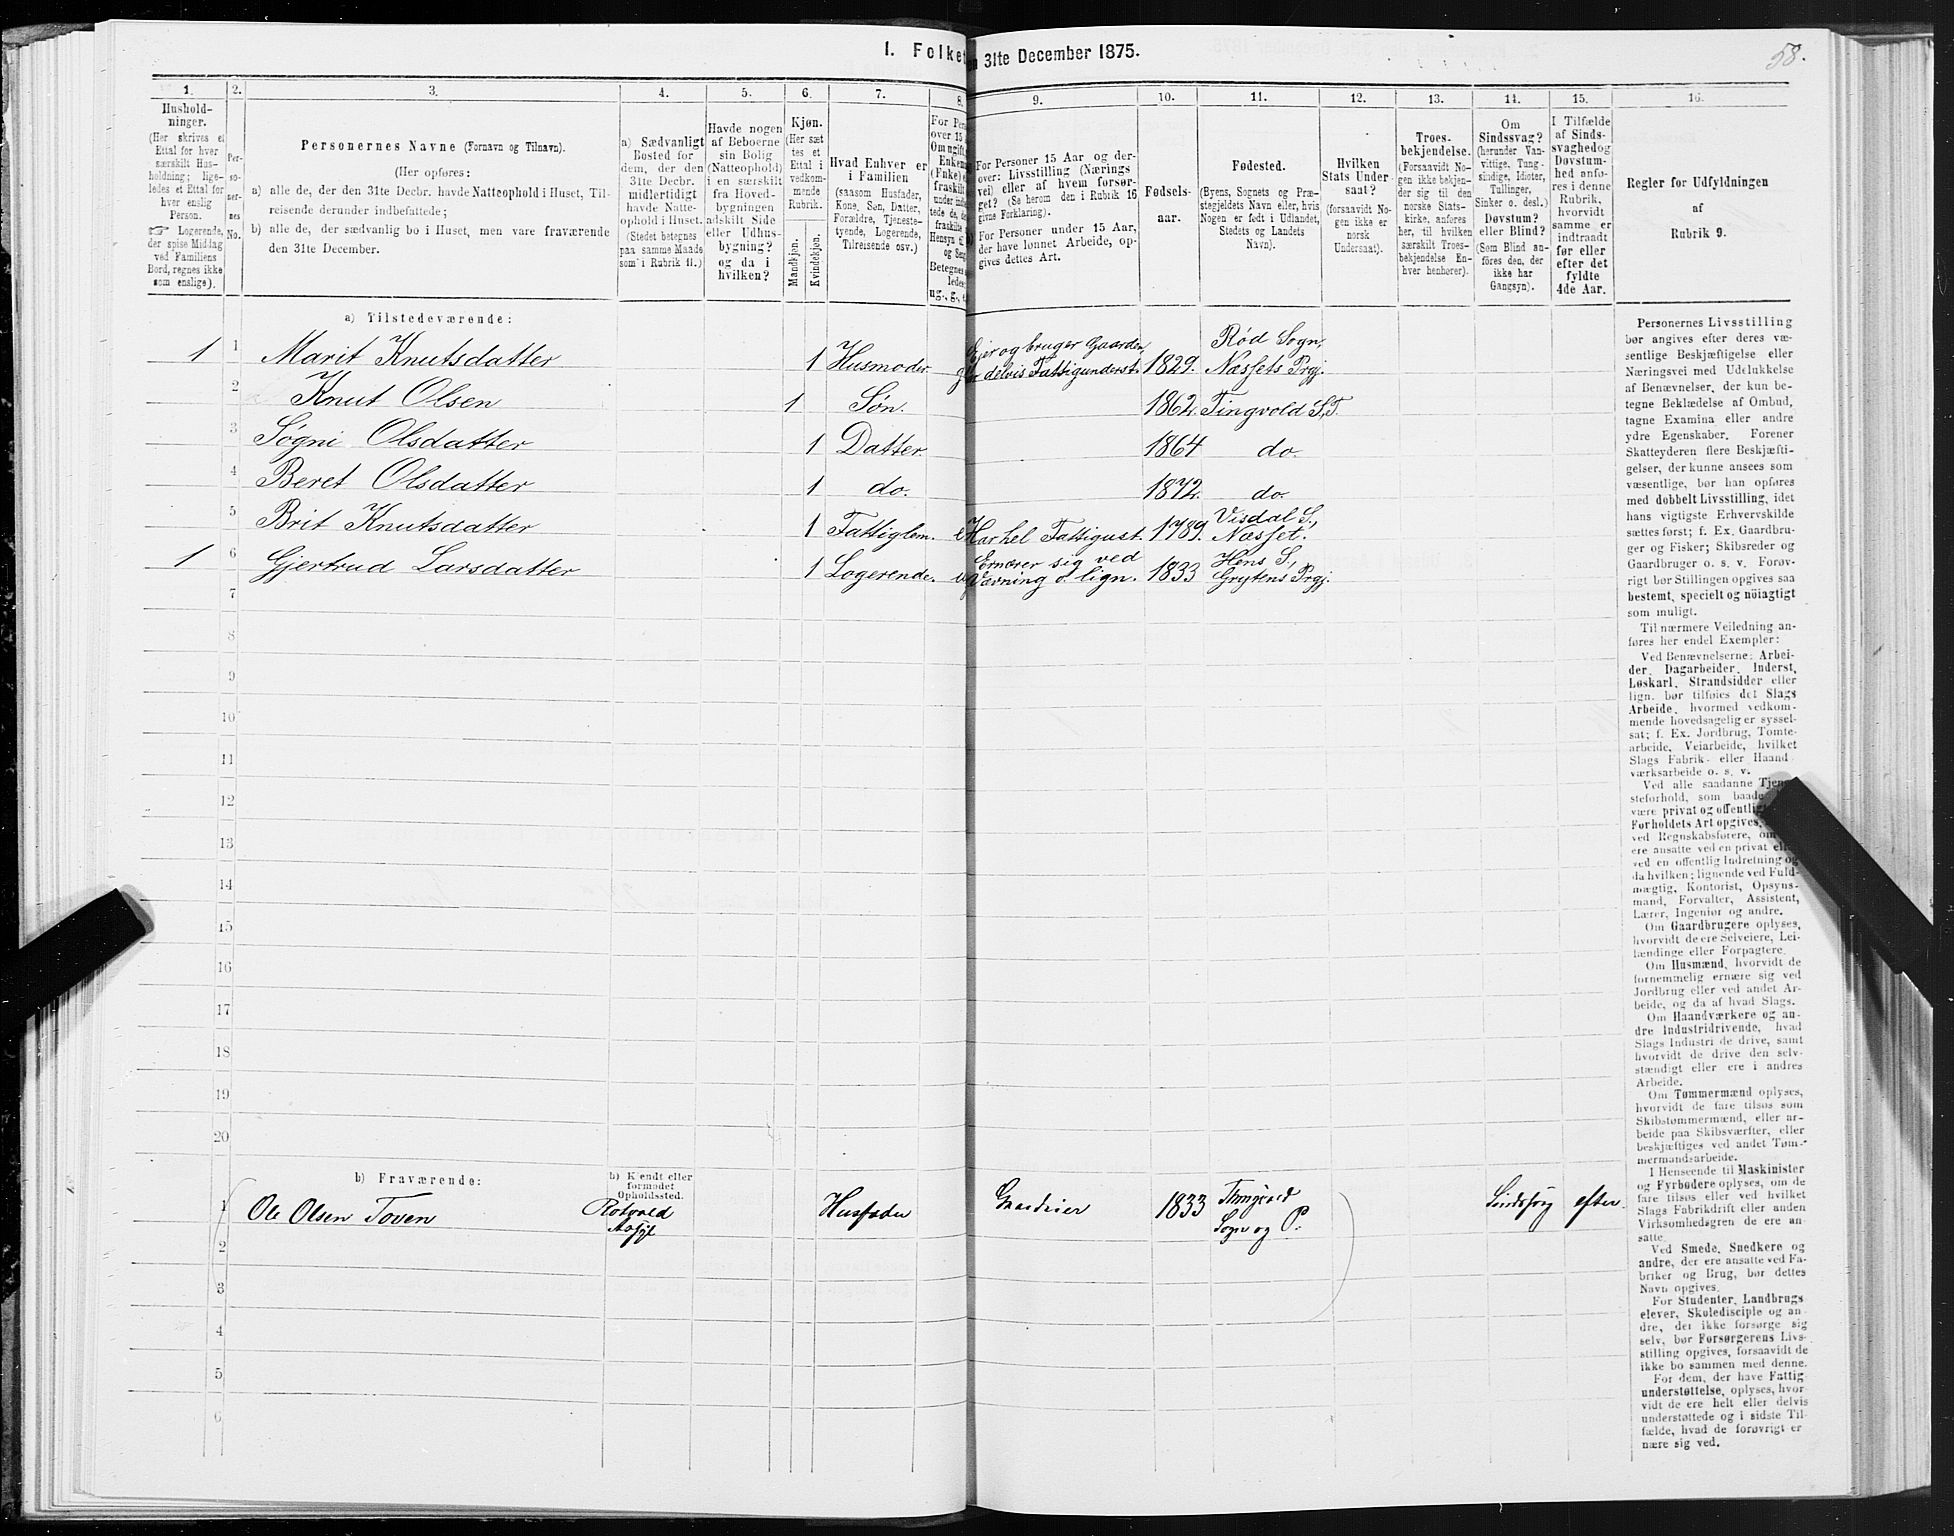 I. Folket
en 31te December 1875.
58.
1.
2.
3.
4.
5.
6.
7.
8.
9.
10.
11.
12.
13.
14.
15.
16.
Hushold-
ninger.
(Her skrives et
Ettal for hver
særskilt Hus-
holdning; lige-
ledes et Ettal for
hver enslig
Person.
☞ Logerende,
der spise Middag
ved Familiens
Bord, regnes ikke
som enslige).
Per-
so-
ner-
nes
No.
Personernes Navne (Fornavn og Tilnavn).
(Her opføres:
a) alle de, der den 31te Decbr. havde Natteophold i Huset, Til-
reisende derunder indbefattede;
b) alle de, der sædvanlig bo i Huset, men vare fraværende
den 31te December.
a) Sædvanligt
Bosted for
dem, der den
31te Decbr.
midlertidigt
havde Natte-
ophold i Huset.
(Stedet betegnes
paa samme Maade
som i Rubrik 11.)
Havde nogen
af Beboerne
sin Bolig
(Natteophold)
i en særskilt
fra Hoved-
bygningen
adskilt Side
eller Udhus-
bygning?
og da i
hvilken?
Kjøn.
(Her sæt
tes et
Ettal i
vedkom-
mende
Rubrik.
Mandkjøn.
Kvindekjøn.
Hvad Enhver er
i Familien
(saasom Husfader,
Kone, Søn, Datter,
Forældre, Tjeneste-
tyende, Logerende,
Tilreisende osv.)
For Pers
over 15
Om ugift,
Enkem
(Enke) e
fraskilt
For Personer 15 Aar og der-
over: Livsstilling (Nærings
vei) eller af hvem forsør-
get? (Se herom den i Rubrik 16
givne Forklaring).
For Personer under 15 Aar,
der have lønnet Arbeide, op-
gives dettes Art.
Fødsels-
aar.
Fødested.
(Byens, Sognets og Præ-
stegjeldets Navn eller, hvis
Nogen er født i Udlandet,
Stedets og Landets
Navn).
Hvilken
Stats Under-
saat?
(forsaavidt No-
gen ikke er
norsk
Undersaat).
Troes-
bekjendelse.
(Forsaavidt No-
gen ikke bekjen-
der sig til den
norske Stats-
kirke, anføres
her, til hvilken
særskilt Troes-
bekjendelse En-
hver henhører).
Om
Sindssvag?
(herunder Van-
vittige, Tung-
sindige, Idioter,
Tullinger,
Sinker o. desl.)
Døvstum?
eller Blind?
(Som Blind an-
føres den, der
ikke har
Gangsyn).
I Tilfælde
af Sinds-
svaghed og
Døvstum-
hed anfø-
res i denne
Rubrik,
hvorvidt
samme er
indtraadt
før eller
efter det
fyldte
4de Aar.
Regler for Udfyldningen
af
Rubrik 9.
a) Tilstedeværende:
1 1 Marit Knutsdatter 1 Husmoder Ejer og bruger Gaarden, delvis Fattigunderst. 1829. Rød Sogn, Næssets Prgj.
2 Knut Olsen 1 Søn. 1862. Tingvold S,T.
3 Søgni Olsdatter 1 Datter 1864 do.
4 Beret Olsdatter 1 do. 1872. do.
5 Brit Knutsdatter 1 Fattiglem. e Har hel Fattigust. 1789. Visdal S., Næsset.
1 6 Gjertrud Larsdatter 1 Logerende. ug Ernærer sig ved Vævning o. lign. 1833 Hens S., Grytens Prgj.
7
8
9
10
11
12
13
14
15
16
17
18
19
20
b) Fraværende:
b) Kjendt eller
formodet
Opholdssted.
1 Ole Olsen Toven Rotvold Husfader Gaardeier 1833 Sogn og P. efter
2
3
4
5
6
Personernes Livsstilling
bør angives efter deres væ-
sentlige Beskjæftigelse eller
Næringsvei med Udelukkelse
af Benævnelser, der kun be-
tegne Beklædelse af Ombud,
tagne Examina eller andre
ydre Egenskaber. Forener
Skatteyderen flere Beskjæfti-
gelser, der kunne ansees som
væsentlige, bør han opføres
med dobbelt Livsstilling, idet
hans vigtigste Erhvervskilde
sættes først; f. Ex. Gaardbru-
ger og Fisker; Skibsreder og
Gaardbruger o. s. v. Forøv-
rigt bør Stillingen opgives saa
bestemt, specielt og nöiagtigt
som muligt.
Til nærmere Veiledning an-
føres her endel Exempler:
Ved Benævnelserne: Arbei-
der, Dagarbeider, Inderst,
Løskarl, Strandsidder eller
lign. bør tilføies det Slags
Arbeide, hvormed vedkom-
mende hovedsagelig er syssel-
sat; f. Ex. Jordbrug, Tomte-
arbeide, Veiarbeide, hvilket
Slags Fabrik- eller Haand-
værksarbeide o. s. v.
Ved alle saadanne Tjene-
steforhold, som baade
være privat og offentligt
Forholdets Art opgives,
ved Regnskabsførere, om
ere ansatte ved en privat el
ved en offentlig Indretning og
da hvilken; lignende ved Fuld-
mægtig, Kontorist, Opsyns-
mand, Forvalter, Assistent,
Lærer, Ingeniør og andre.
Om Gaardbrugere oplyses,
hvorvidt de ere Selveiere, Lei-
lændinge eller Forpagtere.
Om Husmænd, hvorvidt de
fornemmelig ernære sig ved
Jordbrug eller ved andet Ar-
beide, og da af hvad Slags.
Om Haandværkere og an-
dre Industridrivende, hvad
Slags Industri de drive, samt
hvorvidt de drive den selv-
stændigt eller ere i andres
Arbeide.
Om Tømmermænd oplyses,
hvorvidt de fare tilsøs som
Skibstømmermænd, eller ar-
beide paa Skibsværfter, eller
beskjæftiges ved andet Tøm-
mermandsarbeide.
I Henseende til Maskinister
og Fyrbødere oplyses, om de
fare tilsøs eller ved hvilket
Slags Fabrikdrift eller anden
Virksomhedsgren de ere an-
satte.
Ved Smede, Snedkere og
andre, der ere ansatte ved Fa-
briker og Brug, bør dettes
Navn opgives.
For Studenter, Landbrugs
elever, Skoledisciple og an-
dre, der ikke forsørge sig
selv, bør Forsørgerens Livs-
stilling opgives, forsaavidt de
ikke bo sammen med denne.
For dem, der have Fattig
understøttelse, oplyses, hvor-
vidt de ere helt eller delvis
understøttede og i sidste Til-
fælde, hvad de forøvrigt er
nære sig ved.